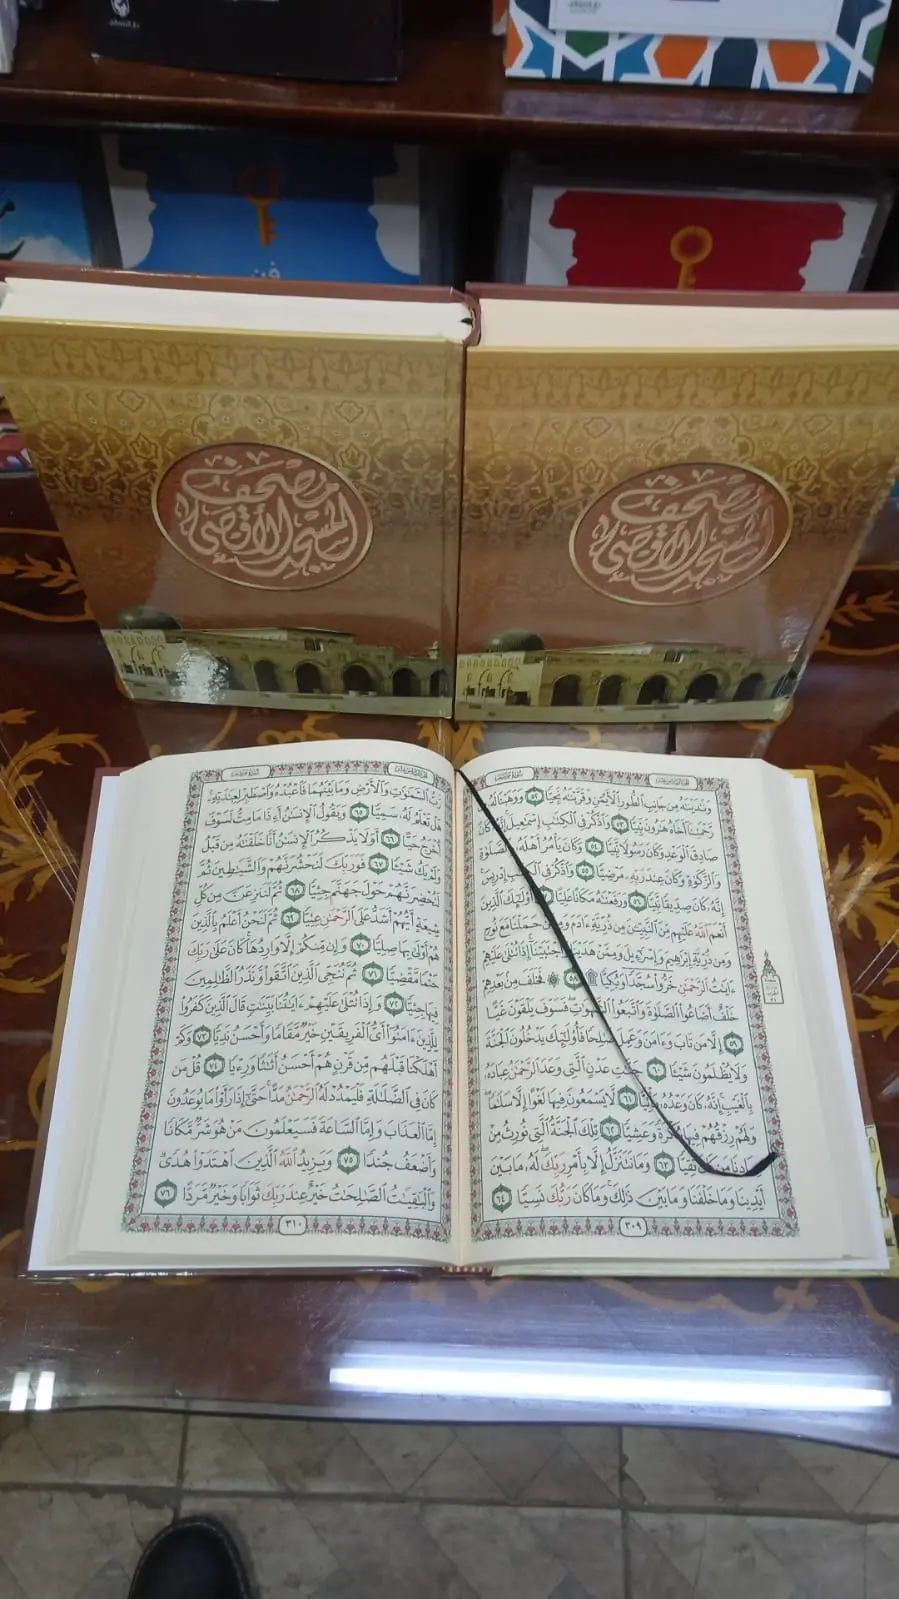 فن
مصحف
المسجد الأقصى
مصحف
المسجد الأقصى
وَنَٰدَيۡنَٰهُ مِن جَانِبِ ٱلطُّورِ ٱلۡأَيۡمَنِ وَقَرَّبۡنَٰهُ نَجِيّٗا ٥٢ وَوَهَبۡنَا لَهُۥ
رَّحۡمَتِنَآ أَخَاهُ هَٰرُونَ نَبِيّٗا ٥٣ وَٱذۡكُرۡ فِي ٱلۡكِتَٰبِ إِسۡمَٰعِيلَۚ إِنَّهُۥ كَانَ
صَادِقَ ٱلۡوَعۡدِ وَكَانَ رَسُولٗا نَّبِيّٗا ٥٤ وَكَانَ يَأۡمُرُ أَهۡلَهُۥ بِٱلصَّلَوٰةِ
وَٱلزَّكَوٰةِ وَكَانَ عِندَ رَبِّهِۦ مَرۡضِيّٗا ٥٥ وَٱذۡكُرۡ فِي ٱلۡكِتَٰبِ إِدۡرِيسَۚ
إِنَّهُۥ كَانَ صِدِّيقٗا نَّبِيّٗا ٥٦ وَرَفَعۡنَٰهُ مَكَانًا عَلِيًّا ٥٧ أُوْلَٰٓئِكَ ٱلَّذِينَ
أَنۡعَمَ ٱللَّهُ عَلَيۡهِم مِّنَ ٱلنَّبِيِّـۧنَ مِن ذُرِّيَّةِ ءَادَمَ وَمِمَّنۡ حَمَلۡنَا مَعَ نُوحٖ
وَمِن ذُرِّيَّةِ إِبۡرَٰهِيمَ وَإِسۡرَٰٓءِيلَ وَمِمَّنۡ هَدَيۡنَا وَٱجۡتَبَيۡنَآۚ إِذَا تُتۡلَىٰ عَلَيۡهِمۡ
ءَايَٰتُ ٱلرَّحۡمَٰنِ خَرُّواْۤ سُجَّدٗاۤ وَبُكِيّٗا۩ ٥٨ ۞ فَخَلَفَ مِنۢ بَعۡدِهِمۡ
خَلۡفٌ أَضَاعُواْ ٱلصَّلَوٰةَ وَٱتَّبَعُواْ ٱلشَّهَوَٰتِۖ فَسَوۡفَ يَلۡقَوۡنَ غَيًّا
٥٩ إِلَّا مَن تَابَ وَءَامَنَ وَعَمِلَ صَٰلِحٗا فَأُوْلَٰٓئِكَ يَدۡخُلُونَ ٱلۡجَنَّةَ
وَلَا يُظۡلَمُونَ شَيۡـٔٗا ٦٠ جَنَّٰتِ عَدۡنٍ ٱلَّتِي وَعَدَ ٱلرَّحۡمَٰنُ عِبَادَهُۥ
بِٱلۡغَيۡبِۚ إِنَّهُۥ كَانَ وَعۡدُهُۥ مَأۡتِيّٗا ٦١ لَّا يَسۡمَعُونَ فِيهَا لَغۡوًا إِلَّا سَلَٰمٗاۖ
وَلَهُمۡ رِزۡقُهُمۡ فِيهَا بُكۡرَةٗ وَعَشِيّٗا ٦٢ تِلۡكَ ٱلۡجَنَّةُ ٱلَّتِي نُورِثُ مِنۡ
عِبَادِنَا مَن كَانَ تَقِيّٗا ٦٣ وَمَا نَتَنَزَّلُ إِلَّا بِأَمۡرِ رَبِّكَۖ لَهُۥ مَا بَيۡنَ
أَيۡدِينَا وَمَا خَلۡفَنَا وَمَا بَيۡنَ ذَٰلِكَۚ وَمَا كَانَ رَبُّكَ نَسِيّٗا ٦٤
٣٠٩
رَّبُّ ٱلسَّمَٰوَٰتِ وَٱلۡأَرۡضِ وَمَا بَيۡنَهُمَا فَٱعۡبُدۡهُ وَٱصۡطَبِرۡ لِعِبَٰدَتِهِۦۚ
هَلۡ تَعۡلَمُ لَهُۥ سَمِيّٗا ٦٥ وَيَقُولُ ٱلۡإِنسَٰنُ أَءِذَا مَا مِتُّ لَسَوۡفَ
أُخۡرَجُ حَيًّا ٦٦ أَوَلَا يَذۡكُرُ ٱلۡإِنسَٰنُ أَنَّا خَلَقۡنَٰهُ مِن قَبۡلُ
وَلَمۡ يَكُ شَيۡـٔٗا ٦٧ فَوَرَبِّكَ لَنَحۡشُرَنَّهُمۡ وَٱلشَّيَٰطِينَ ثُمَّ
لَنُحۡضِرَنَّهُمۡ حَوۡلَ جَهَنَّمَ جِثِيّٗا ٦٨ ثُمَّ لَنَنزِعَنَّ مِن كُلِّ
شِيعَةٍ أَيُّهُمۡ أَشَدُّ عَلَى ٱلرَّحۡمَٰنِ عِتِيّٗا ٦٩ ثُمَّ لَنَحۡنُ أَعۡلَمُ بِٱلَّذِينَ
هُمۡ أَوۡلَىٰ بِهَا صِلِيّٗا ٧٠ وَإِن مِّنكُمۡ إِلَّا وَارِدُهَاۚ كَانَ عَلَىٰ رَبِّكَ
حَتۡمٗا مَّقۡضِيّٗا ٧١ ثُمَّ نُنَجِّي ٱلَّذِينَ ٱتَّقَواْ وَّنَذَرُ ٱلظَّٰلِمِينَ
فِيهَا جِثِيّٗا ٧٢ وَإِذَا تُتۡلَىٰ عَلَيۡهِمۡ ءَايَٰتُنَا بَيِّنَٰتٖ قَالَ ٱلَّذِينَ كَفَرُواْ
لِلَّذِينَ ءَامَنُوٓاْ أَيُّ ٱلۡفَرِيقَيۡنِ خَيۡرٞ مَّقَامٗا وَأَحۡسَنُ نَدِيّٗا ٧٣ وَكَمۡ
أَهۡلَكۡنَا قَبۡلَهُم مِّن قَرۡنٍ هُمۡ أَحۡسَنُ أَثَٰثٗا وَرِءۡيٗا ٧٤ قُلۡ مَن
كَانَ فِي ٱلضَّلَٰلَةِ فَلۡيَمۡدُدۡ لَهُ ٱلرَّحۡمَٰنُ مَدًّاۚ حَتَّىٰٓ إِذَا رَأَوۡاْ مَا يُوعَدُونَ
إِمَّا ٱلۡعَذَابَ وَإِمَّا ٱلسَّاعَةَ فَسَيَعۡلَمُونَ مَنۡ هُوَ شَرّٞ مَّكَانٗا
وَأَضۡعَفُ جُندٗا ٧٥ وَيَزِيدُ ٱللَّهُ ٱلَّذِينَ ٱهۡتَدَوۡاْ هُدٗىۗ
وَٱلۡبَٰقِيَٰتُ ٱلصَّٰلِحَٰتُ خَيۡرٌ عِندَ رَبِّكَ ثَوَابٗا وَخَيۡرٞ مَّرَدًّا ٧٦
٣١٠